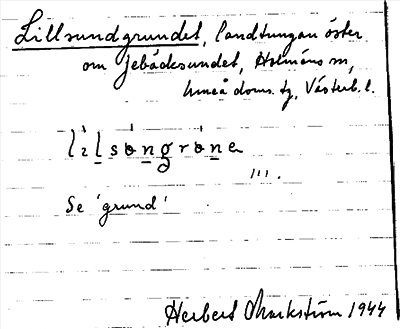 Lillsundgrundet, landtungan öster
om Jebäcksundet, Holmöns sn,
Umeå doms. tg, Västerb. l.
lılsøngrøne
Se 'grund'
Herbert Markström 1944